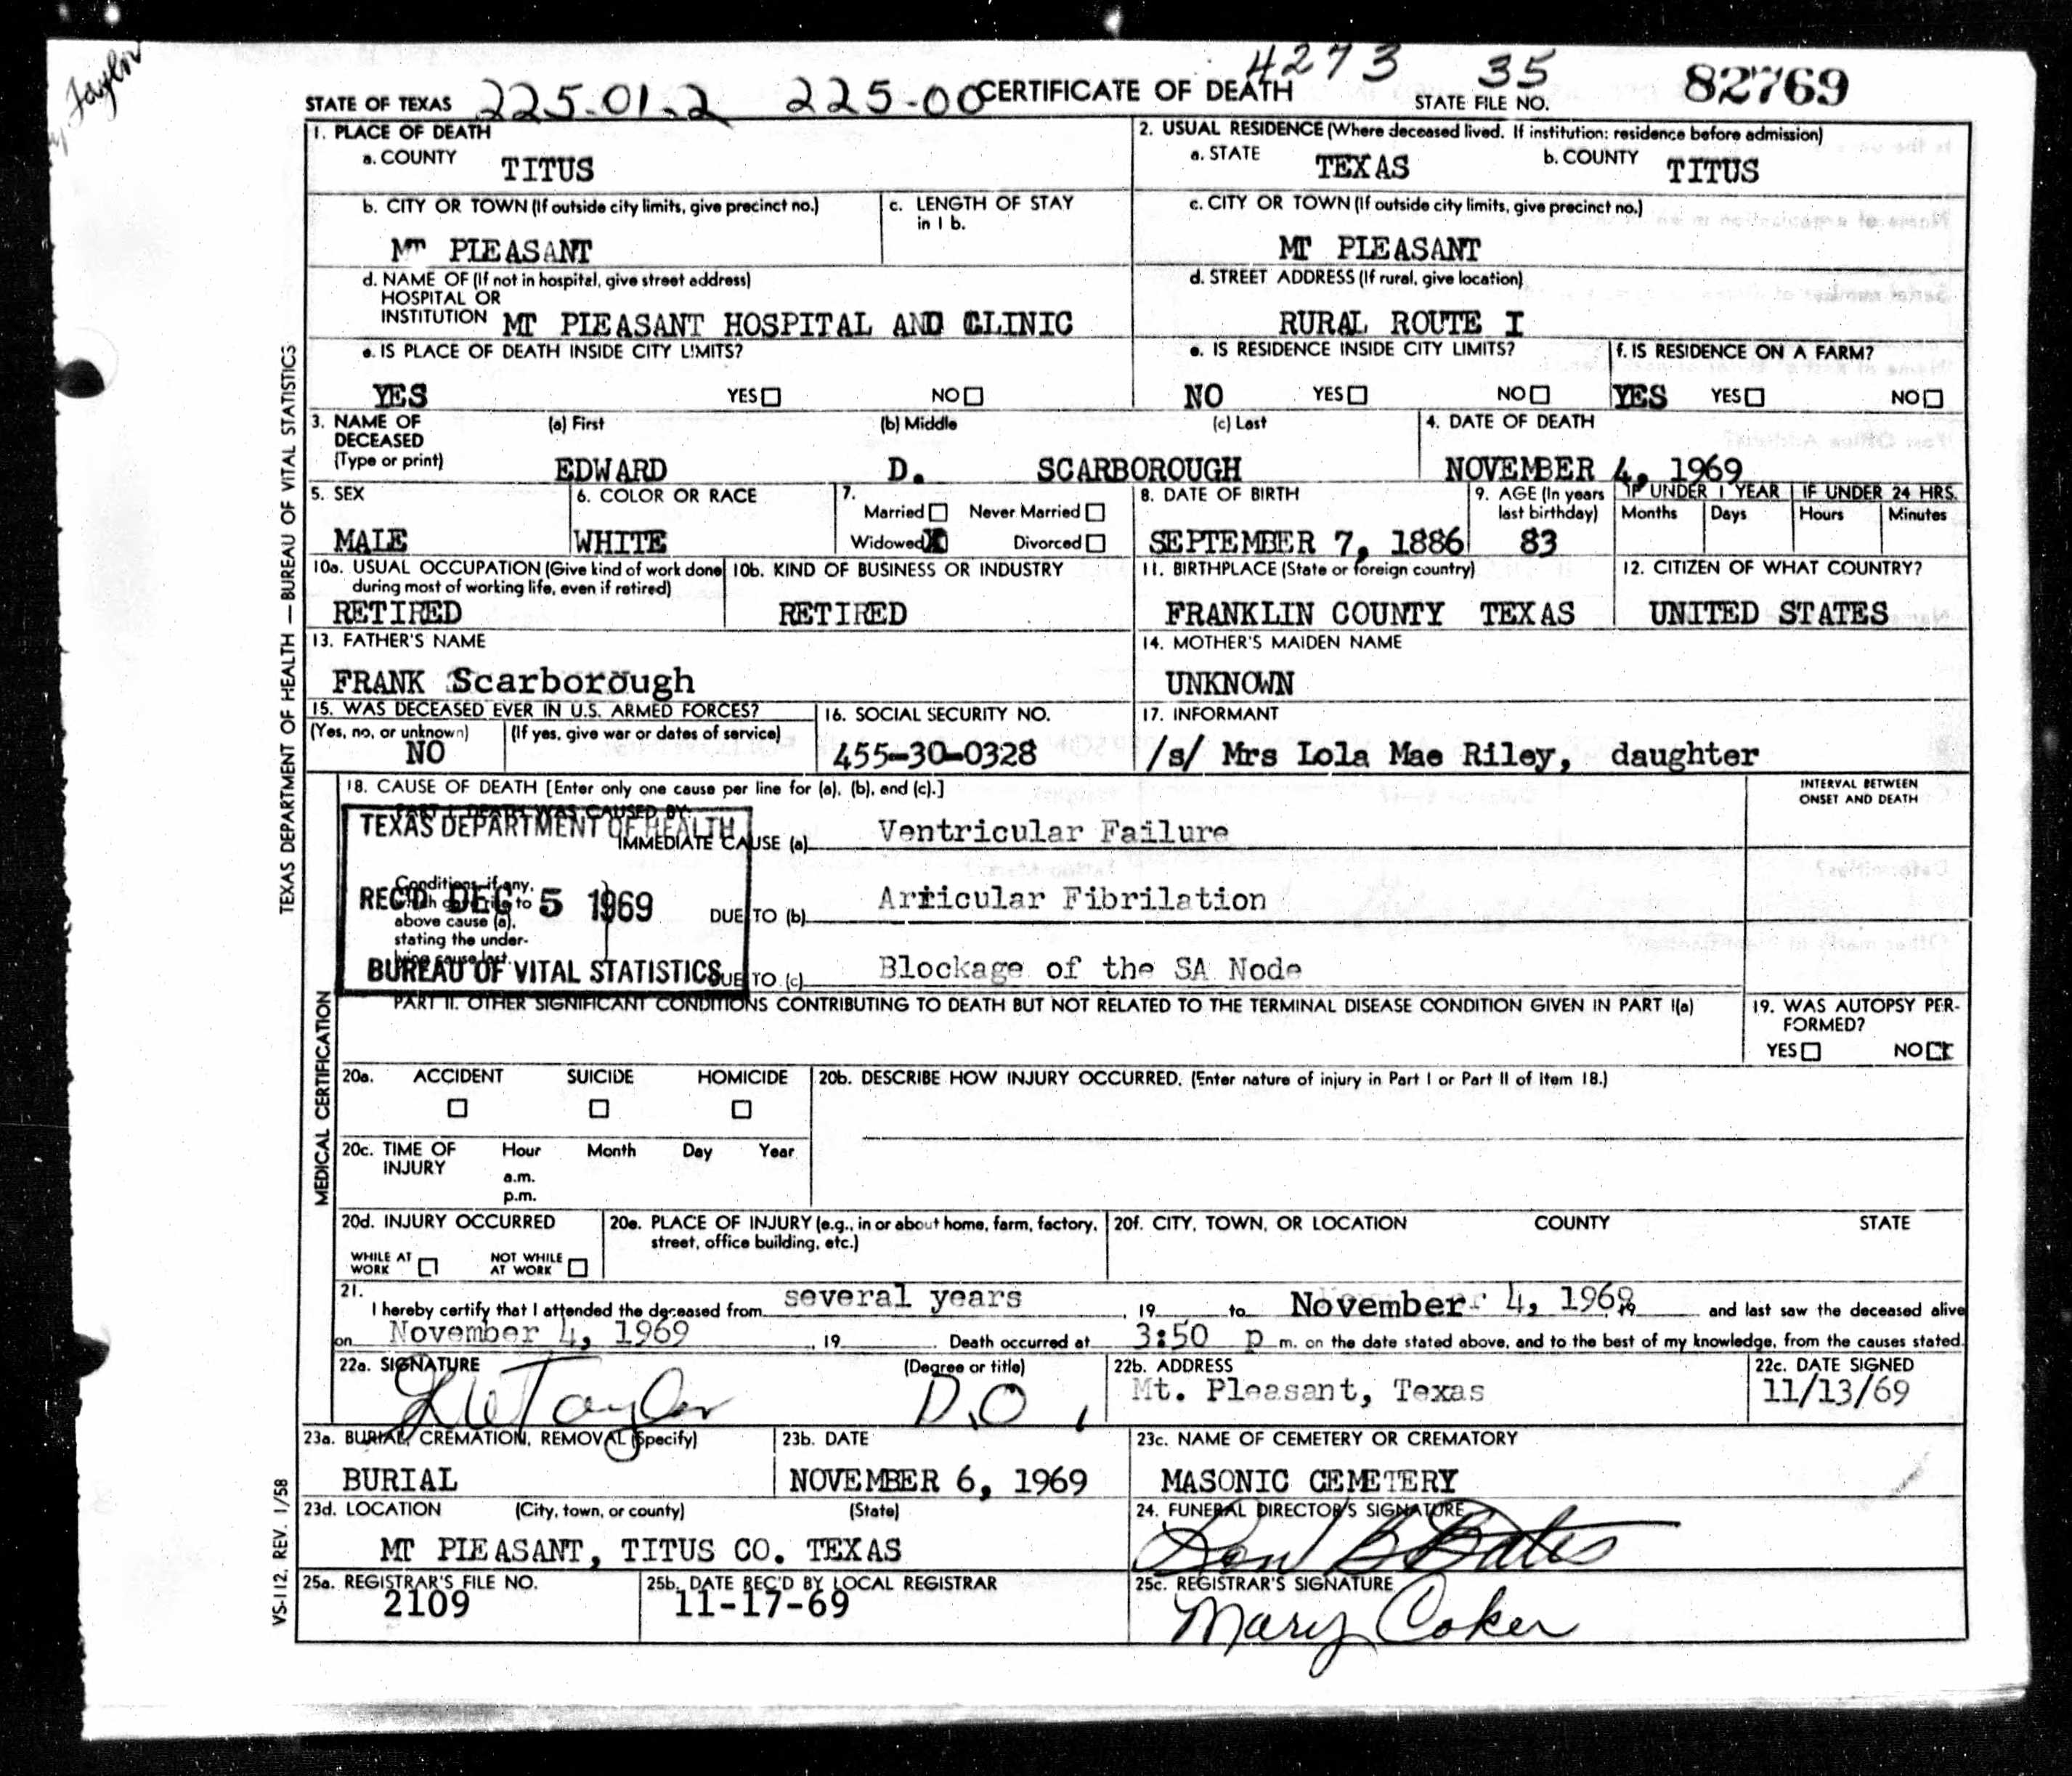 4273 35 82769
STATE OF TEXAS 225-01-2 225-00 CERTIFICATE OF DEATH STATE FILE NO.
1. PLACE OF DEATH
a. COUNTY TITUS
b. CITY OR TOWN (If outside city limits, give precinct no.)
MT PLEASANT
c. LENGTH OF STAY
in 1 b.
d. NAME OF (If not in hospital, give street address)
HOSPITAL OR
INSTITUTION MT PLEASANT HOSPITAL AND CLINIC
e. IS PLACE OF DEATH INSIDE CITY LIMITS?
YES YES NO
2. USUAL RESIDENCE (Where deceased lived. If institution: residence before admission)
a. STATE TEXAS b. COUNTY TITUS
c. CITY OR TOWN (If outside city limits, give precinct no.)
MT PLEASANT
d. STREET ADDRESS (If rural, give location)
RURAL ROUTE I
e. IS RESIDENCE INSIDE CITY LIMITS?
NO YES NO
f. IS RESIDENCE ON A FARM?
YES YES NO
3. NAME OF (a) First (b) Middle (c) Last
DECEASED
(Type or print)
EDWARD D. SCARBOROUGH
4. DATE OF DEATH
NOVEMBER 4, 1969
5. SEX
MALE
6. COLOR OR RACE
WHITE
7.
Married Never Married
Widowed X Divorced
8. DATE OF BIRTH
SEPTEMBER 7, 1886
9. AGE (In years
last birthday)
83
IF UNDER 1 YEAR IF UNDER 24 HRS.
Months Days Hours Minutes
10a. USUAL OCCUPATION (Give kind of work done
during most of working life, even if retired)
RETIRED
10b. KIND OF BUSINESS OR INDUSTRY
RETIRED
11. BIRTHPLACE (State or foreign country)
FRANKLIN COUNTY TEXAS
12. CITIZEN OF WHAT COUNTRY?
UNITED STATES
13. FATHER'S NAME
FRANK Scarborough
14. MOTHER'S MAIDEN NAME
UNKNOWN
15. WAS DECEASED EVER IN U.S. ARMED FORCES?
(Yes, no, or unknown) (If yes, give war or dates of service)
NO
16. SOCIAL SECURITY NO.
455-30-0328
17. INFORMANT
/s/ Mrs Lola Mae Riley, daughter
18. CAUSE OF DEATH [Enter only one cause per line for (a), (b), and (c).]
INTERVAL BETWEEN
ONSET AND DEATH
PART I. DEATH WAS CAUSED BY:
IMMEDIATE CAUSE (a) Ventricular Failure
Conditions, if any,
which gave rise to
above cause (a),
stating the under-
lying cause last.
DUE TO (b) Arricular Fibrilation
DUE TO (c) Blockage of the SA Node
TEXAS DEPARTMENT OF HEALTH
REC'D DEC 5 1969
BUREAU OF VITAL STATISTICS
PART II. OTHER SIGNIFICANT CONDITIONS CONTRIBUTING TO DEATH BUT NOT RELATED TO THE TERMINAL DISEASE CONDITION GIVEN IN PART I(a)
19. WAS AUTOPSY PER-
FORMED?
YES NO
20a. ACCIDENT SUICIDE HOMICIDE
20b. DESCRIBE HOW INJURY OCCURRED. (Enter nature of injury in Part I or Part II of item 18.)
20c. TIME OF Hour Month Day Year
INJURY
a.m.
p.m.
20d. INJURY OCCURRED
WHILE AT NOT WHILE
WORK AT WORK
20e. PLACE OF INJURY (e.g., in or about home, farm, factory,
street, office building, etc.)
20f. CITY, TOWN, OR LOCATION COUNTY STATE
21.
I hereby certify that I attended the deceased from several years, 19 to November 4, 1969 and last saw the deceased alive
on November 4, 1969, 19 . Death occurred at 3:50 p m. on the date stated above, and to the best of my knowledge, from the causes stated.
22a. SIGNATURE (Degree or title)
L W Taylor D.O.
22b. ADDRESS
Mt. Pleasant, Texas
22c. DATE SIGNED
11/13/69
23a. BURIAL, CREMATION, REMOVAL (Specify)
BURIAL
23b. DATE
NOVEMBER 6, 1969
23c. NAME OF CEMETERY OR CREMATORY
MASONIC CEMETERY
23d. LOCATION (City, town, or county) (State)
MT PLEASANT, TITUS CO. TEXAS
24. FUNERAL DIRECTOR'S SIGNATURE
Don B Bates
25a. REGISTRAR'S FILE NO.
2109
25b. DATE REC'D BY LOCAL REGISTRAR
11-17-69
25c. REGISTRAR'S SIGNATURE
Mary Coker
TEXAS DEPARTMENT OF HEALTH — BUREAU OF VITAL STATISTICS
MEDICAL CERTIFICATION
VS-112, REV. 1/58
Taylor